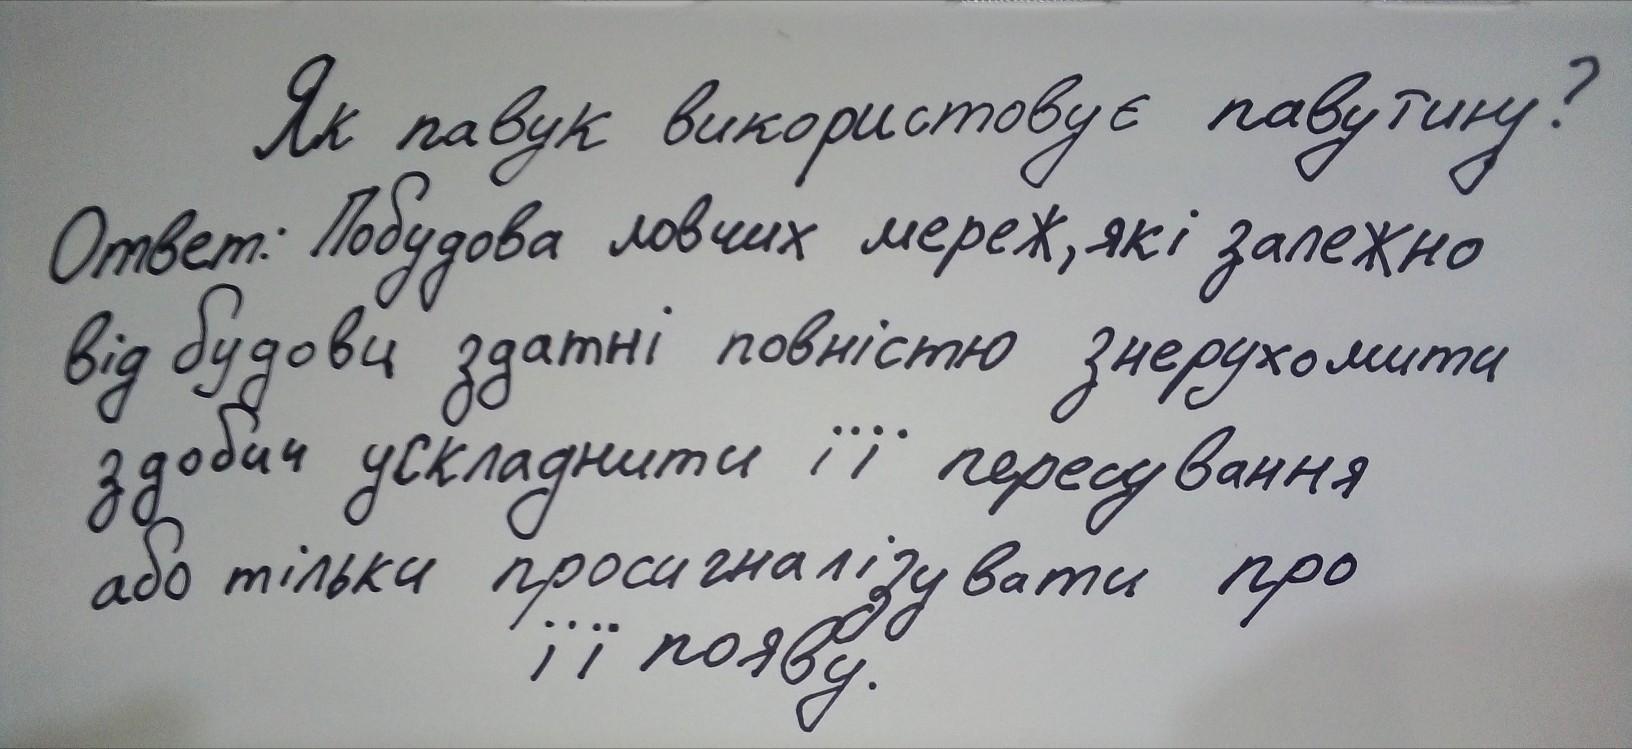 Як павук використовує павутину?
Ответ: Побудова ловчих мереж, які залежно
від будови здатні повністю знерухомити
здобич ускладнити її пересування
або тільки просигналізувати про
її появу.